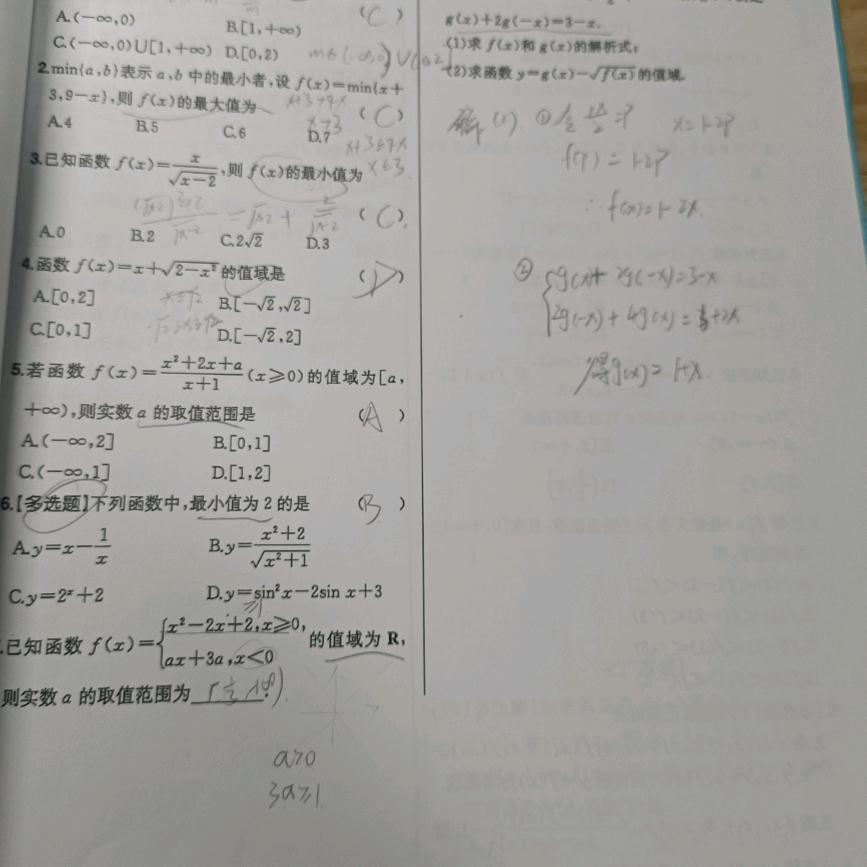 A.(-∞,0)
B.[1,+∞)
(C)
C.(-∞,0)∪[1,+∞)
D.[0,2)
2.min{a,b}表示a,b中的最小者,设f(x)=min{x+
3,9-x},则f(x)的最大值为
(C)
A.4
B.5
C.6
D.7
x>3
x≤3
3.已知函数f(x)=x/√(x-2),则f(x)的最小值为
(C)
A.0
B.2
C.2√2
D.3
4.函数f(x)=x+√(2-x²)的值域是
(D)
A.[0,2]
B.[-√2,√2]
C.[0,1]
D.[-√2,2]
5.若函数f(x)=(x²+2x+a)/(x+1)(x≥0)的值域为[a,
+∞),则实数a的取值范围是
(A)
A.(-∞,2]
B.[0,1]
C.(-∞,1]
D.[1,2]
6.[多选题]下列函数中,最小值为2的是
(B)
A.y=x-1/x
B.y=(x²+2)/√(x²+1)
C.y=2ˣ+2
D.y=sin²x-2sin x+3
.已知函数f(x)={x²-2x+2,x≥0,
ax+3a,x<0
的值域为R,
则实数a的取值范围为
a>0
3a≥1
g(x)+2g(-x)=3-x.
(1)求f(x)和g(x)的解析式;
(2)求函数y=g(x)-√f(x)的值域.
解(1)①
x=1-2p
f(p)=1-2p
∴f(x)=1-2x.
②{g(x)+2g(-x)=3-x
2g(-x)+4g(x)=
得g(x)=1+x.